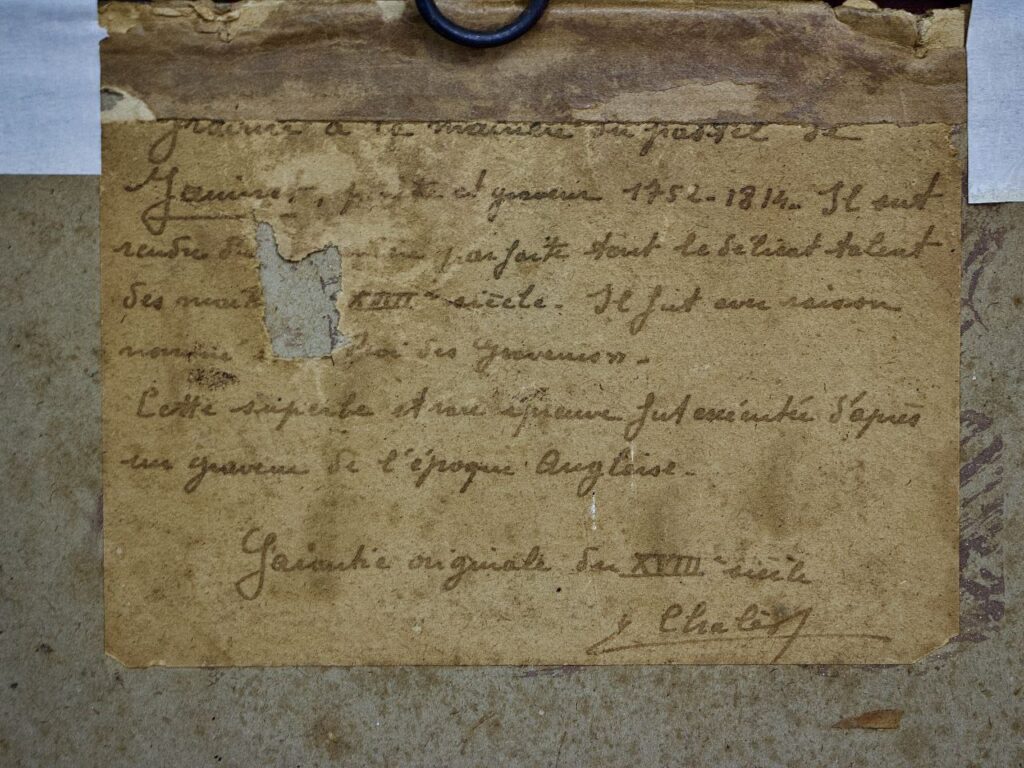 Gravure à la manière du pastel de
Janinet, peintre et graveur 1752-1814. Il sut
rendre parfaite tout le délicat talent
des XVIIIe siècle. Il fut avec raison
nommé Roi des Graveurs".
Cette superbe et rare épreuve fut exécutée d'après
un graveur de l'époque Anglaise.
Garantie originale du XVIIIe siècle